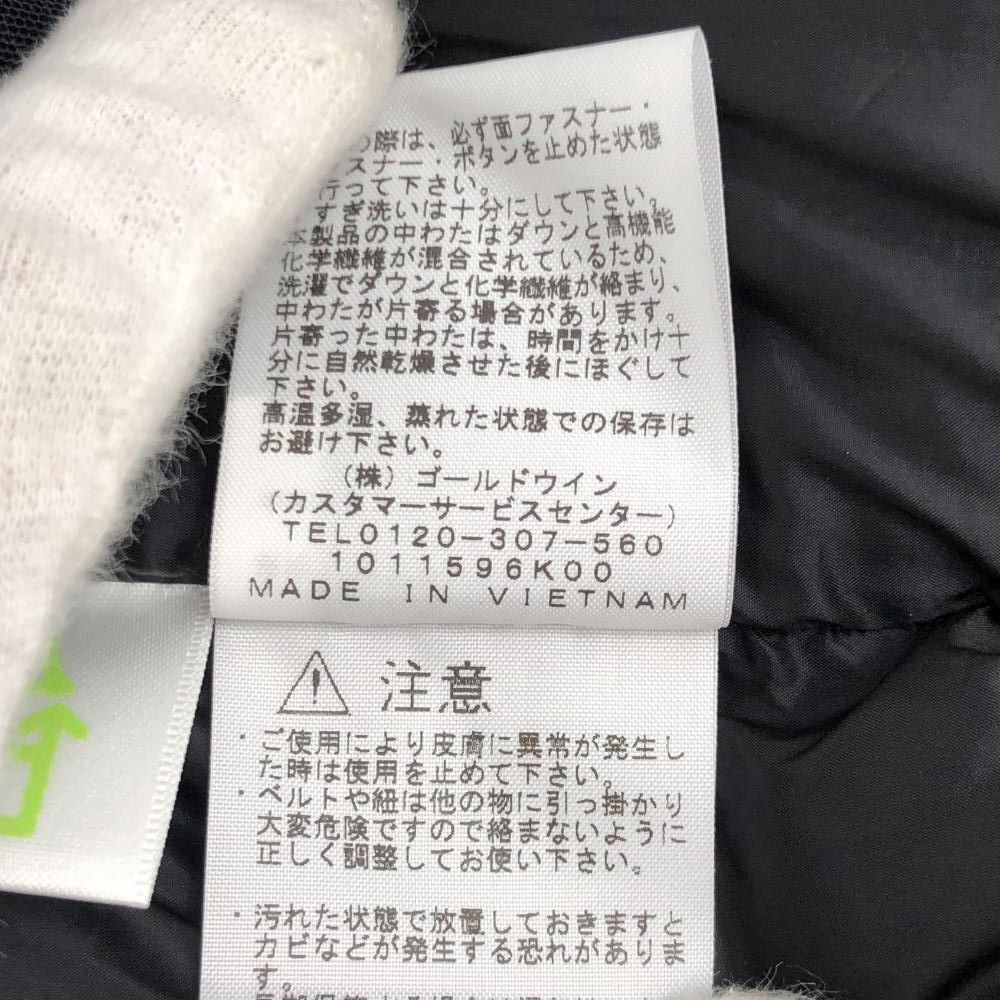 際は、必ず面ファスナー・
スナー・ボタンを止めた状態
行って下さい。
すぎ洗いは十分にして下さい。
本製品の中わたはダウンと高機能
化学繊維が混合されているため、
洗濯でダウンと化学繊維が絡まり、
中わたが片寄る場合があります。
片寄った中わたは、時間をかけ十
分に自然乾燥させた後にほぐして
下さい。
高温多湿、蒸れた状態での保存は
お避け下さい。
(株)ゴールドウイン
(カスタマーサービスセンター)
TEL0120-307-560
1011596K00
MADE IN VIETNAM
注意
・ご使用により皮膚に異常が発生し
た時は使用を止めて下さい。
・ベルトや紐は他の物に引っ掛かり
大変危険ですので絡まないように
正しく調整してお使い下さい。
・汚れた状態で放置しておきますと
カビなどが発生する恐れがありま
す。